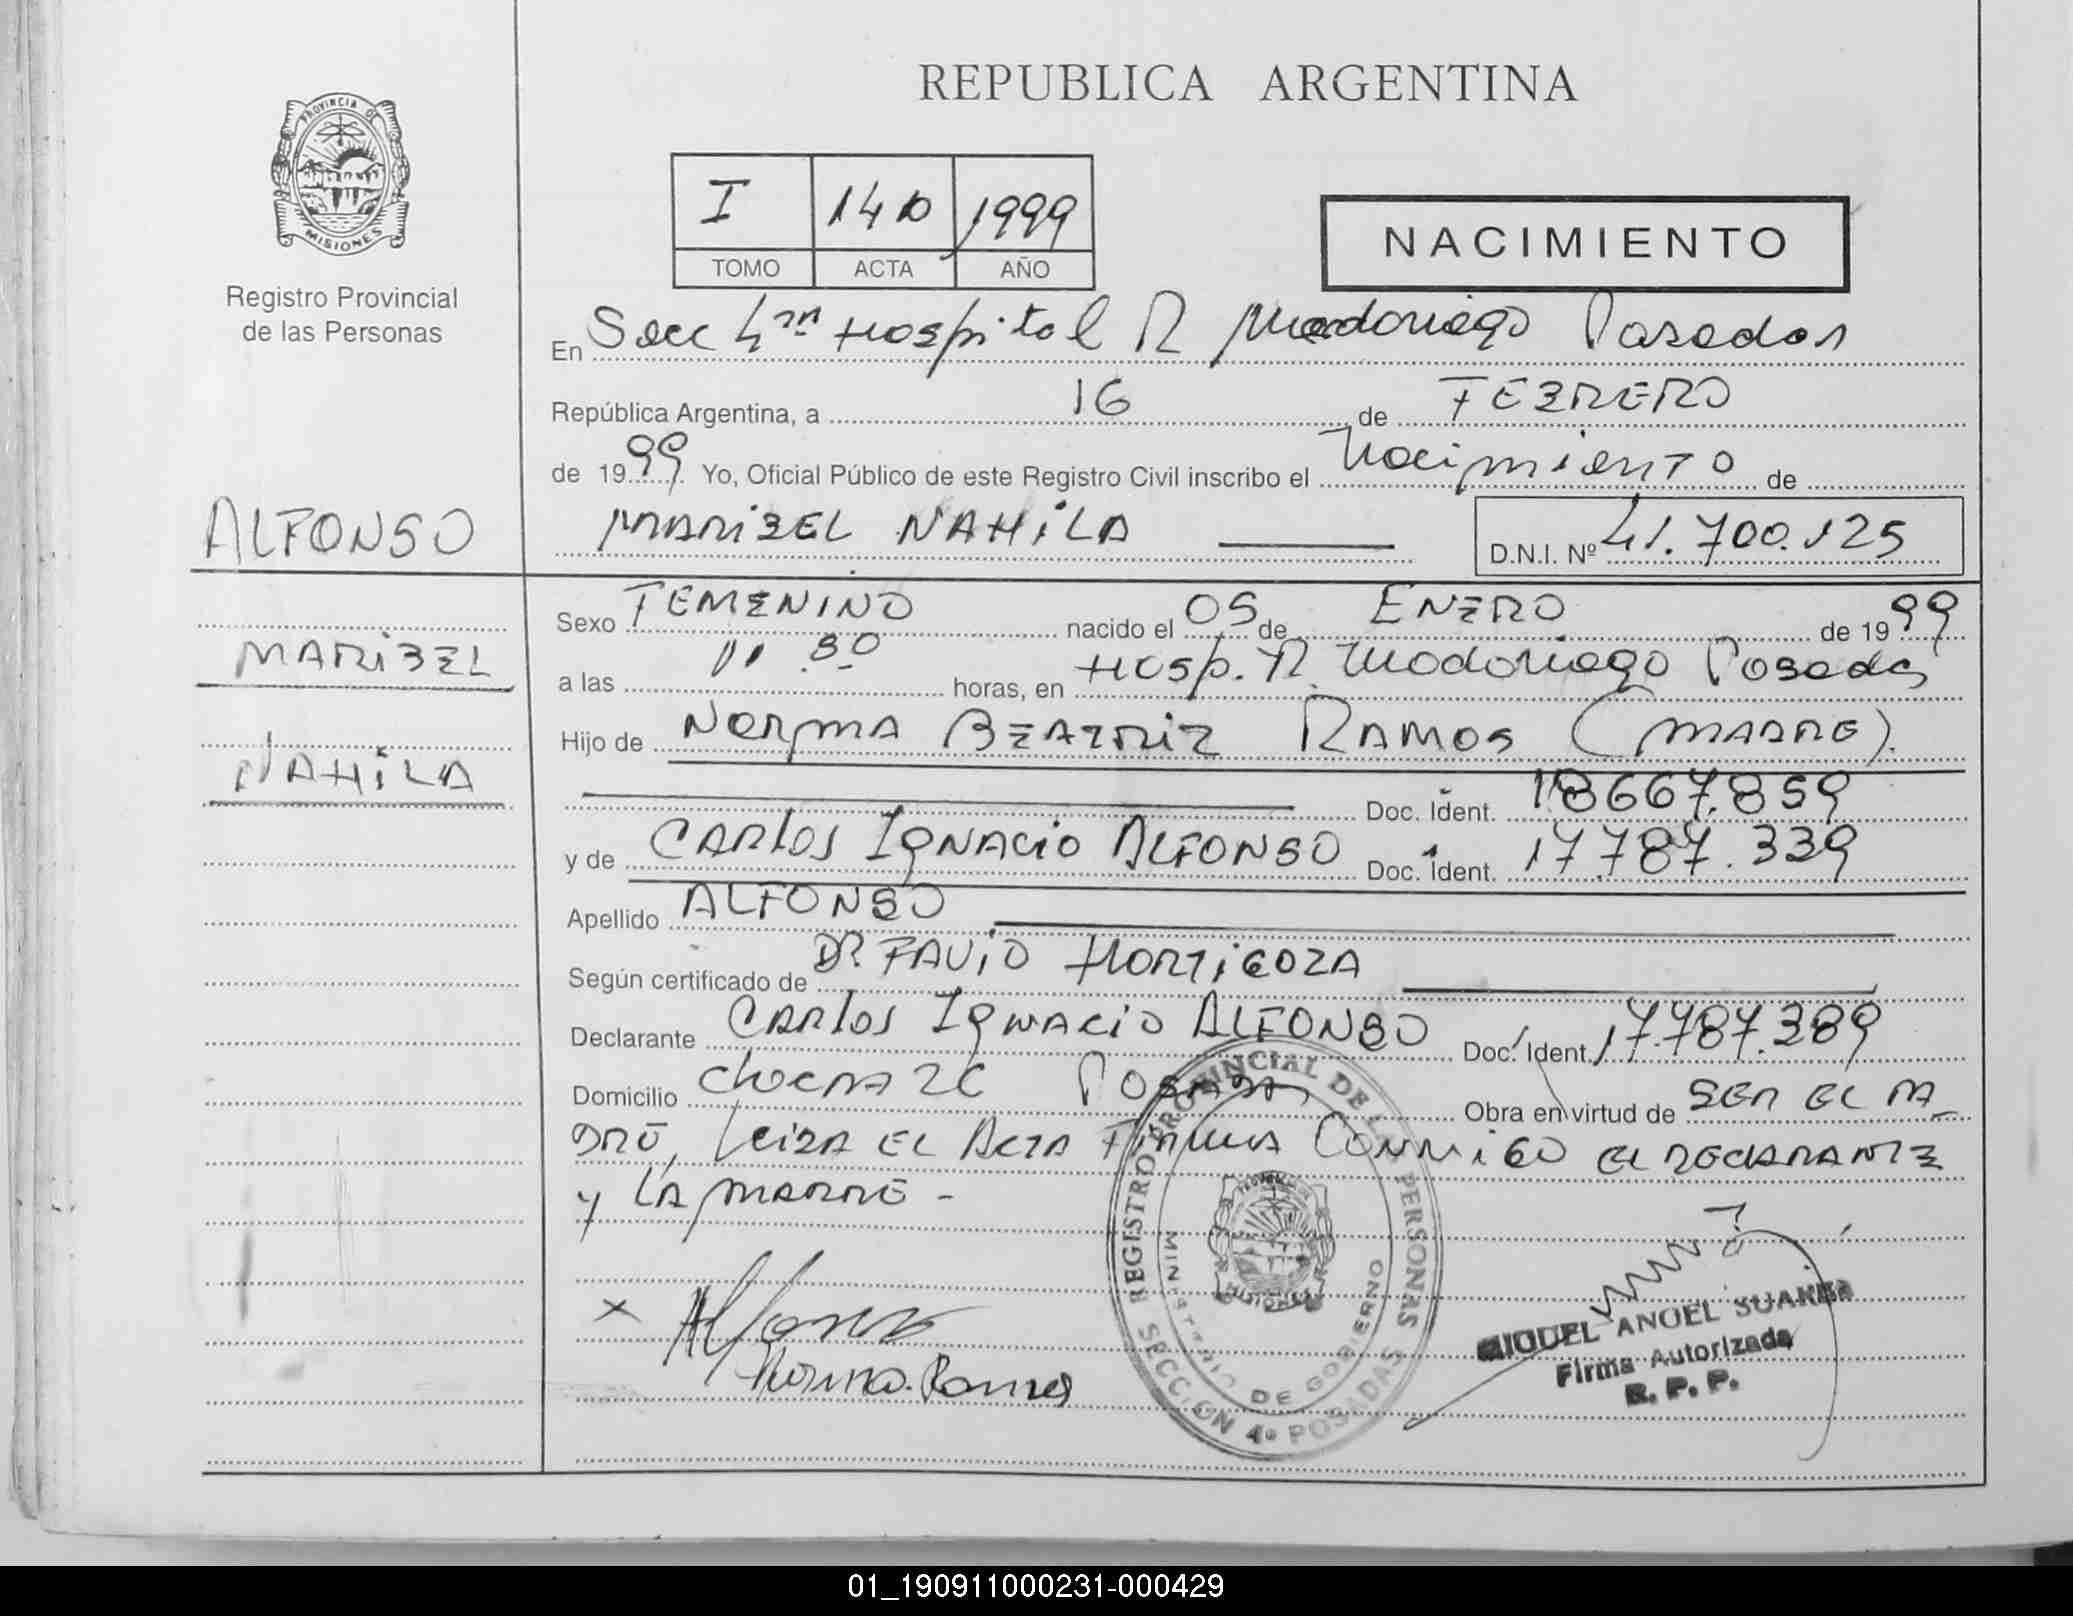 REPUBLICA ARGENTINA
PROVINCIA DE
MISIONES
Registro Provincial
de las Personas
I 140 1999
TOMO ACTA AÑO
NACIMIENTO
En Secc 4ta Hospital R Madariaga Posadas
República Argentina, a 16 de FEBRERO
de 1999 Yo, Oficial Público de este Registro Civil inscribo el Nacimiento de
MARIBEL NAHILA D.N.I. Nº 41.700.125
ALFONSO
MARIBEL
NAHILA
Sexo FEMENINO nacido el 05 de ENERO de 1999
a las 11 30 horas, en Hosp. R. Madariaga Posadas
Hijo de NORMA BEATRIZ RAMOS (MADRE).
Doc. Ident. 18667.859
y de CARLOS IGNACIO ALFONSO Doc. Ident. 17.787.339
Apellido ALFONSO
Según certificado de DR FAVIO HORTIGOZA
Declarante CARLOS IGNACIO ALFONSO Doc. Ident. 17.787.389
Domicilio CHACRA 26 POSADAS Obra en virtud de SER EL PA
DRE, LEIDA EL ACTA FIRMA CONMIGO EL DECLARANTE
y LA MADRE -
REGISTRO PROVINCIAL DE LAS PERSONAS
MINISTERIO DE GOBIERNO
MISIONES
SECCION 4ª POSADAS
x Alfonso
Norma Ramos
MIGUEL ANGEL SUAREZ
Firma Autorizada
R. P. P.
01_190911000231-000429